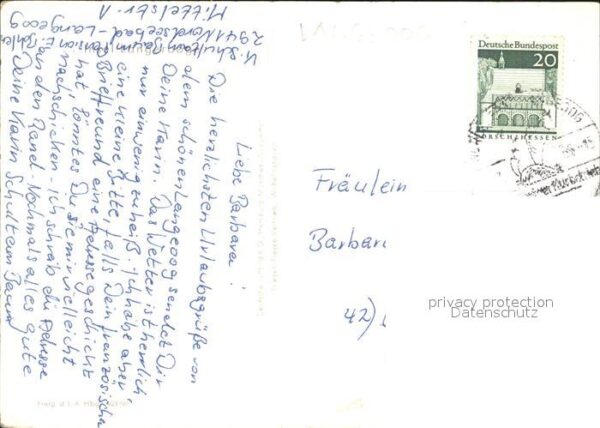 Liebe Barbara!
Die herzlichsten Urlaubsgrüße von
dem schönen Langeoog sendet Dir
Deine Karin. Das Wetter ist herrlich
nur ein wenig zu heiß. Ich habe aber
eine kleine Bitte, falls Dein französische
Brieffreund eine Adresse geschickt
hat, könntest Du sie mir vielleicht
nachschicken. Ich schrieb die Adresse
auf den Rand. Nochmals alles gute
Deine Karin Schult am Baum
K. Schult am Baum
2941 Nordseebad-Langeoog
Mittelstr. 1
Deutsche Bundespost
20
LORSCH/HESSEN
LANGEOOG
Fräulein
Barbar
42)
privacy protection
Datenschutz